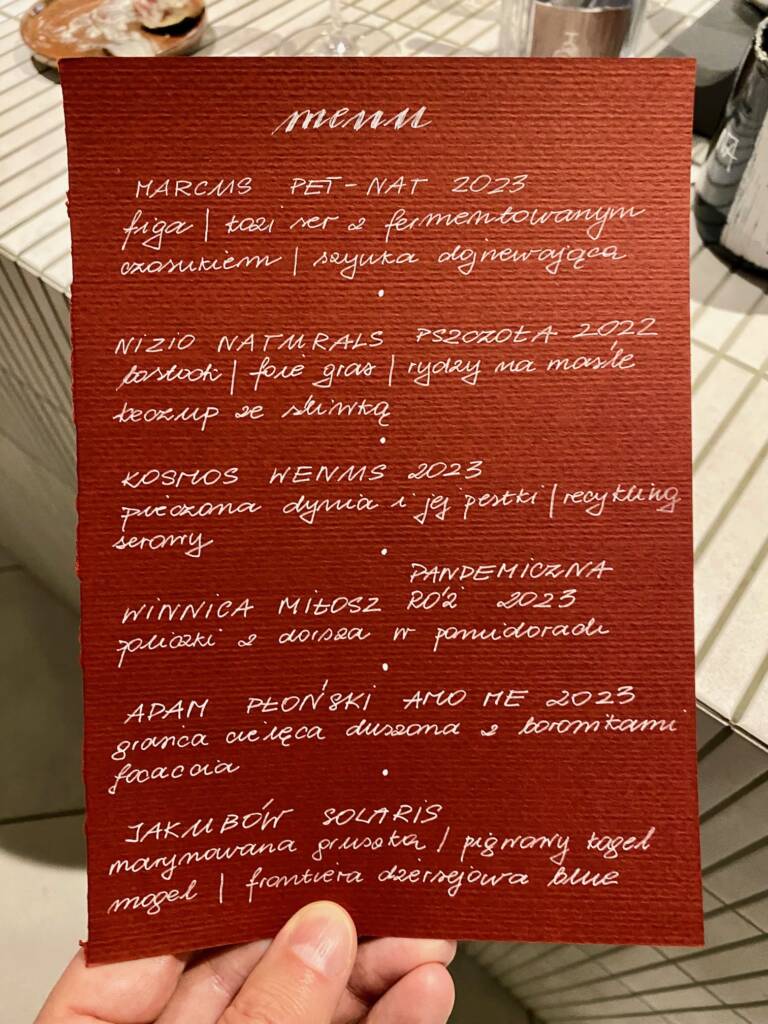 menu
MARCUS PET-NAT 2023
figa | kozi ser z fermentowanym
czosnkiem | szynka dojrzewająca
NIZIO NATURALS PSZCZOŁA 2022
bostock | foie gras | rydzy na maśle
keczup ze śliwką
KOSMOS WENUS 2023
pieczona dynia i jej pestki | recykling
serowy
PANDEMICZNA
WINNICA MIŁOSZ RÓŻ 2023
policzki z dorsza w pomidorach
ADAM PŁOŃSKI AMO ME 2023
grasica cielęca duszona z borowikami
focaccia
JAKUBÓW SOLARIS
marynowana gruszka | pigwowy kogel
mogel | frontiera dzierżejowa blue